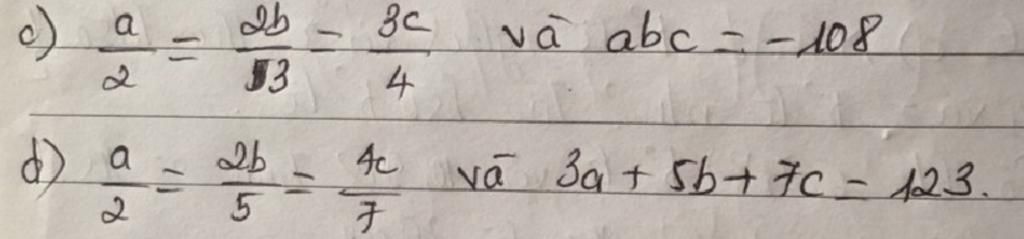 c) a/2 = 2b/3 = 3c/4 và abc = -108
d) a/2 = 2b/5 = 4c/7 và 3a + 5b + 7c = 123.